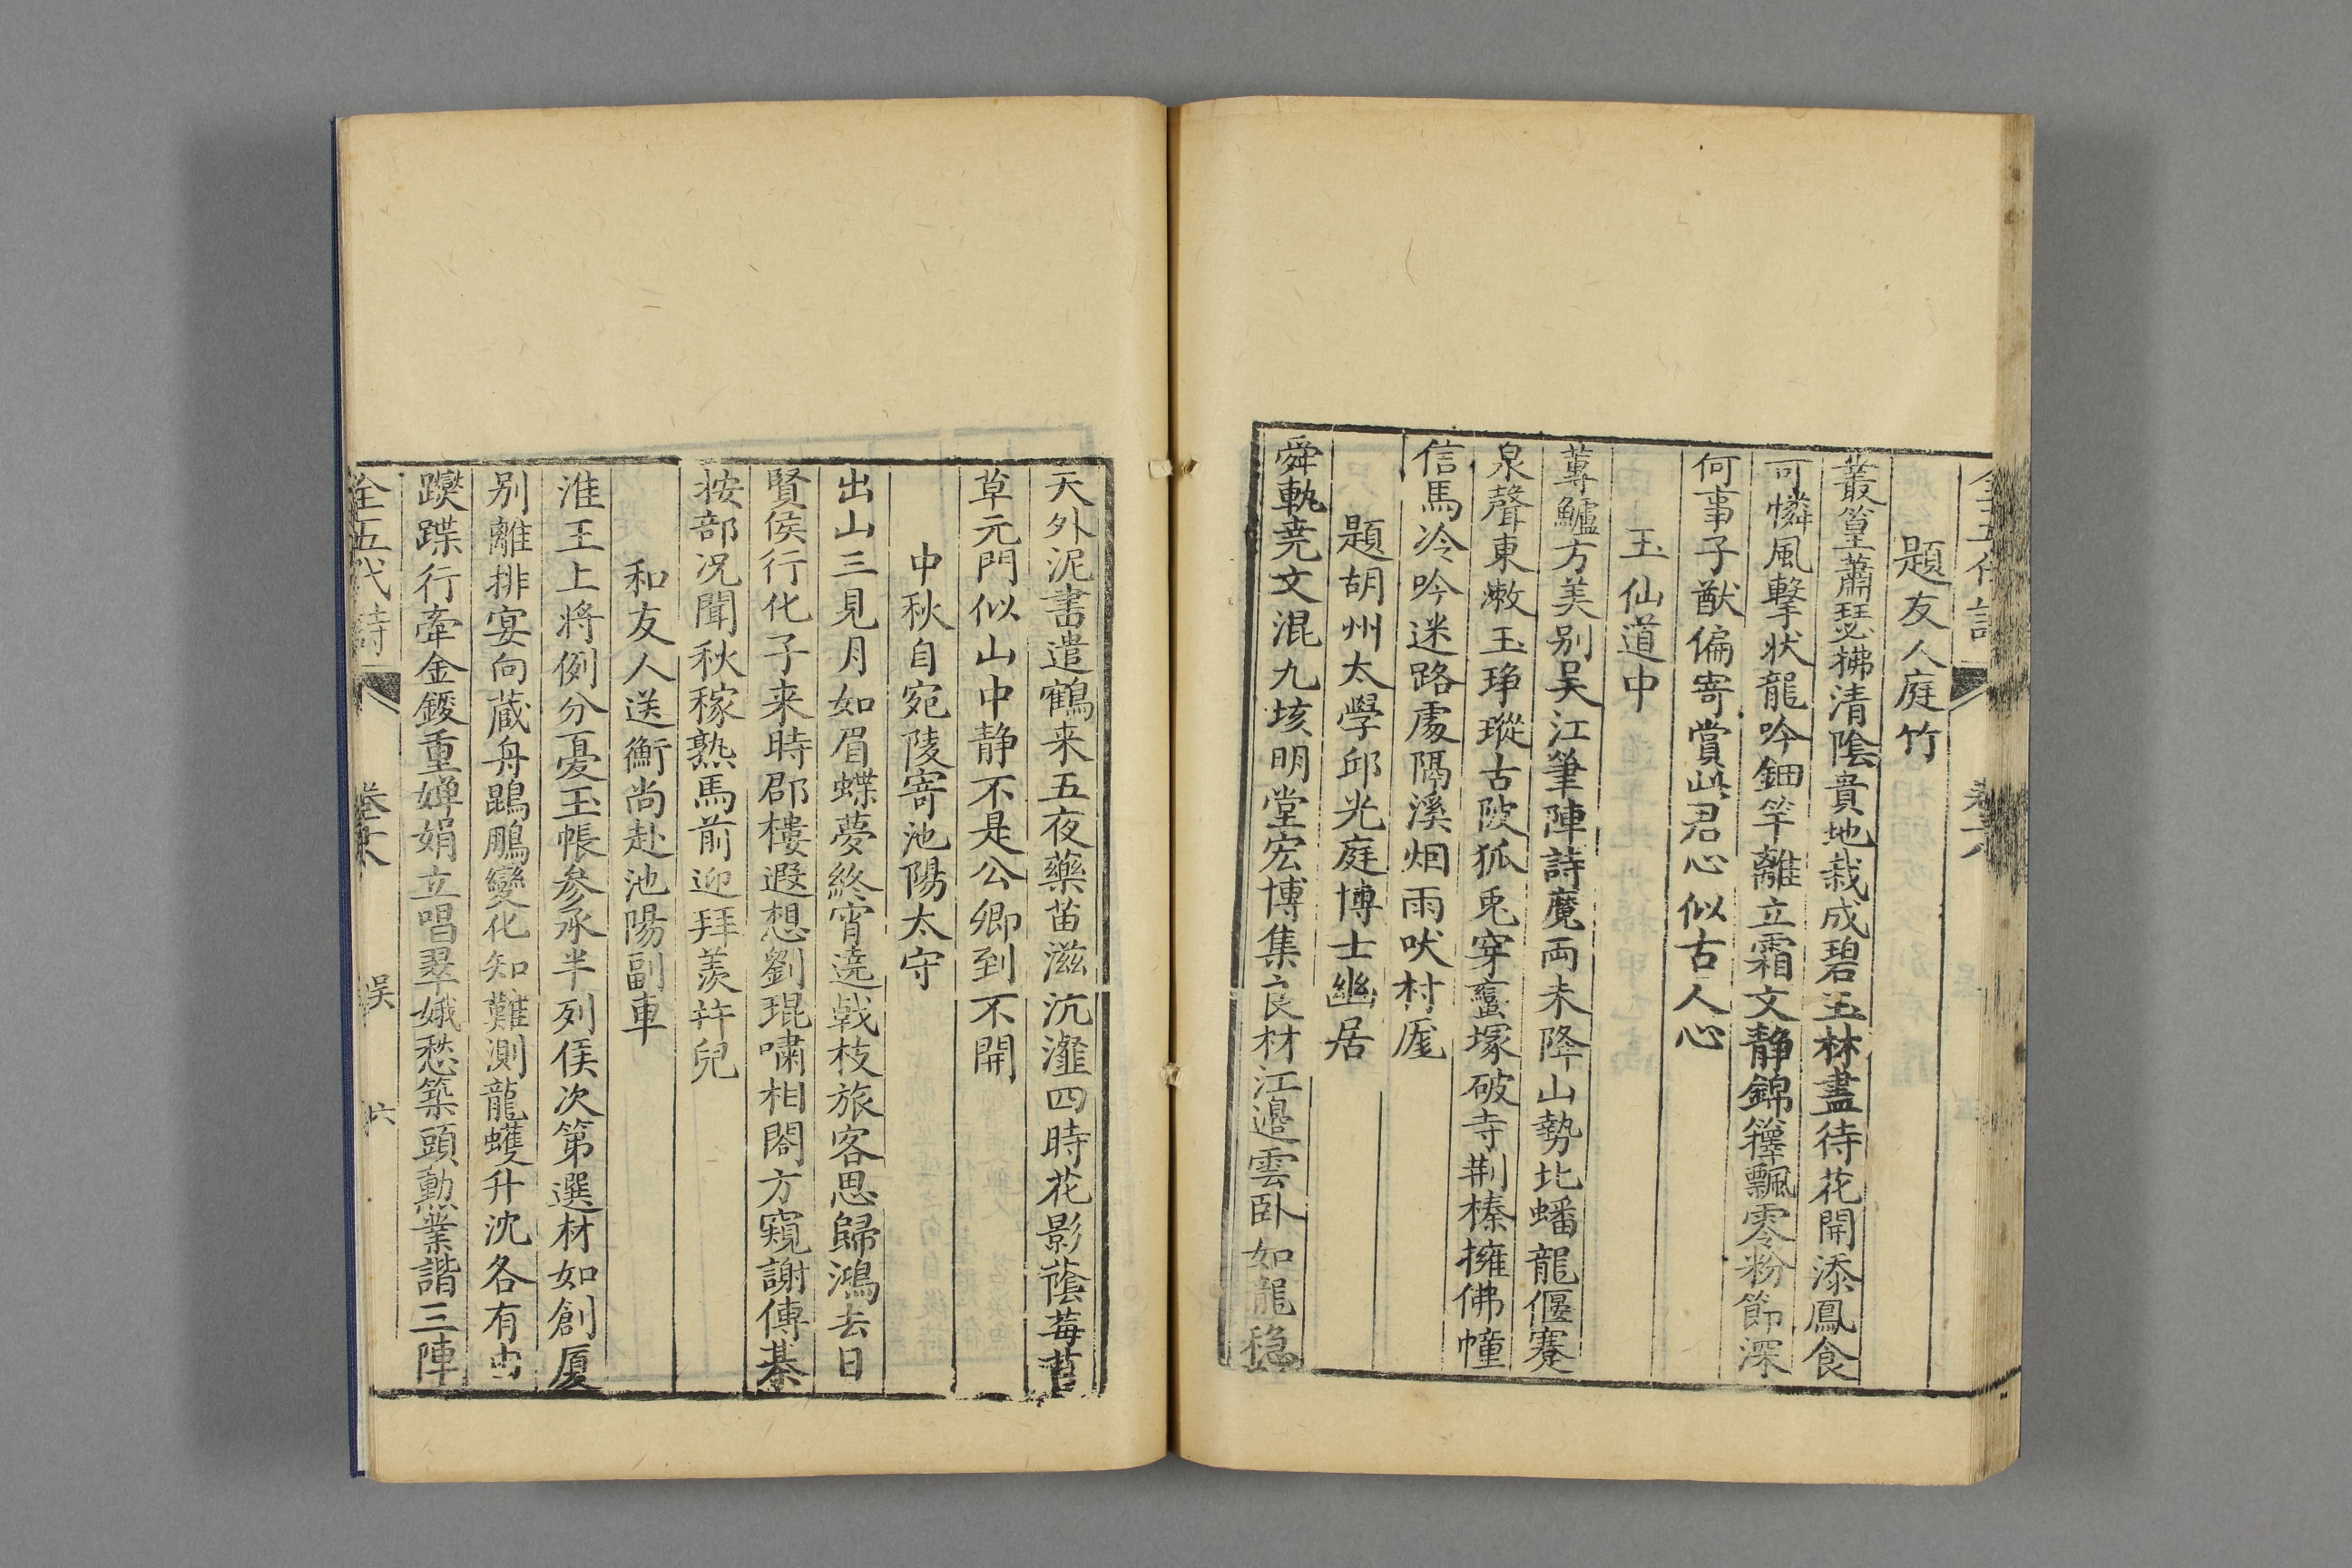 題友人庭竹
叢篁蕭瑟拂清陰貴地栽成碧玉林盡待花開添鳳食
可憐風擊狀龍吟鈿竿離立霜文靜錦籜飄零粉節深
何事子猷偏寄賞此君心似古人心
玉仙道中
蓴鱸方美别吴江筆陣詩魔両未降山勢北蟠龍偃蹇
泉聲東漱玉琤瑽古陂狐兎穿蠻塚破寺荆榛擁佛幢
信馬冷吟迷路處隔溪烟雨吠村厖
題胡州太學邱光庭博士幽居
舜軌尭文混九垓明堂宏博集良材江邉雲卧如龍穏
天外泥書遣鶴来五夜藥苗滋沆瀣四時花影蔭莓苔
草元門似山中静不是公卿到不開
中秋自宛陵寄池陽太守
出山三見月如眉蝶夢終宵遶戟枝旅客思歸鴻去日
賢侯行化子来時郡樓遐想劉琨嘯相閤方窺謝傳棊
按部况聞秋稼熟馬前迎拜羨幷兒
和友人送衡尚赴池陽副車
淮王上將例分憂玉帳参承半列侯次第選材如創厦
别離排宴向蔵舟鵾鵬變化知難測龍蠖升沈各有由
躞蹀行牽金鍐重嬋娟立唱翠娥愁築頭勲業諧三陣
全五代詩 卷六 吴 六